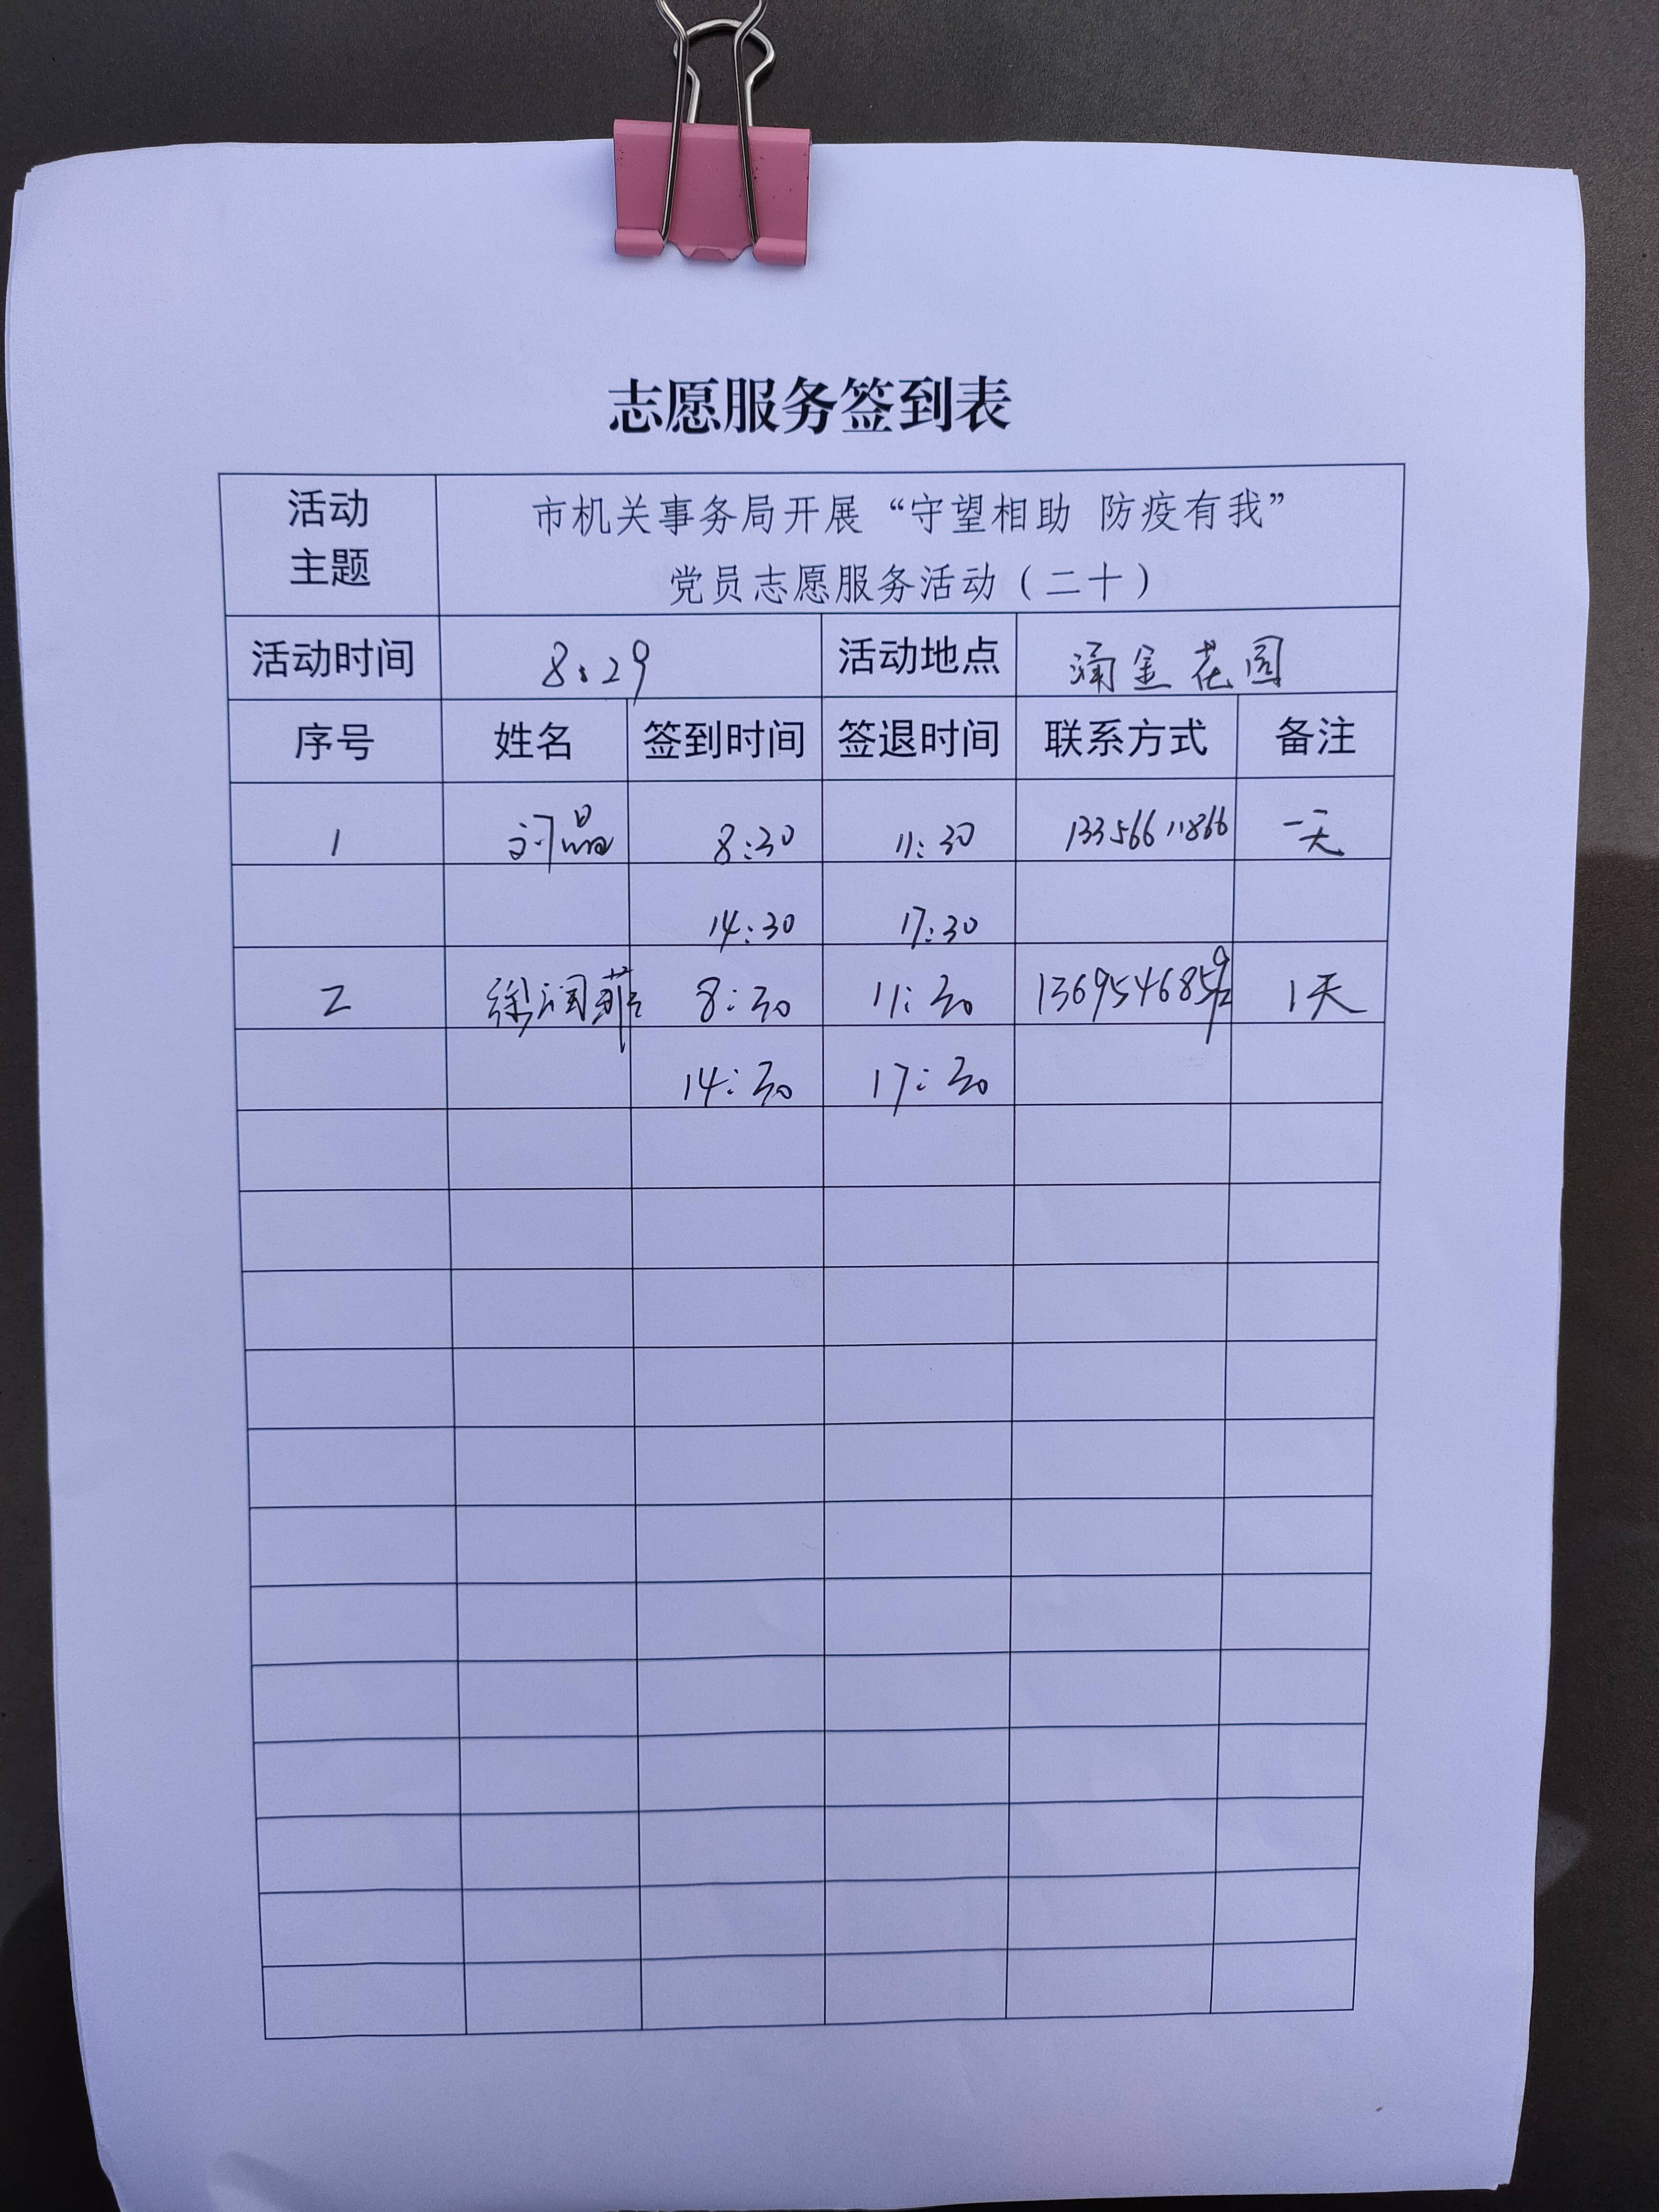 志愿服务签到表
活动主题 市机关事务局开展“守望相助 防疫有我”
党员志愿服务活动（二十）
活动时间 8:29 活动地点 涌金花园
序号 姓名 签到时间 签退时间 联系方式 备注
1 刘晶 8:30 11:30 13356611866 一天
14:30 17:30
2 徐润菲 8:30 11:30 1369546859 1天
14:30 17:30